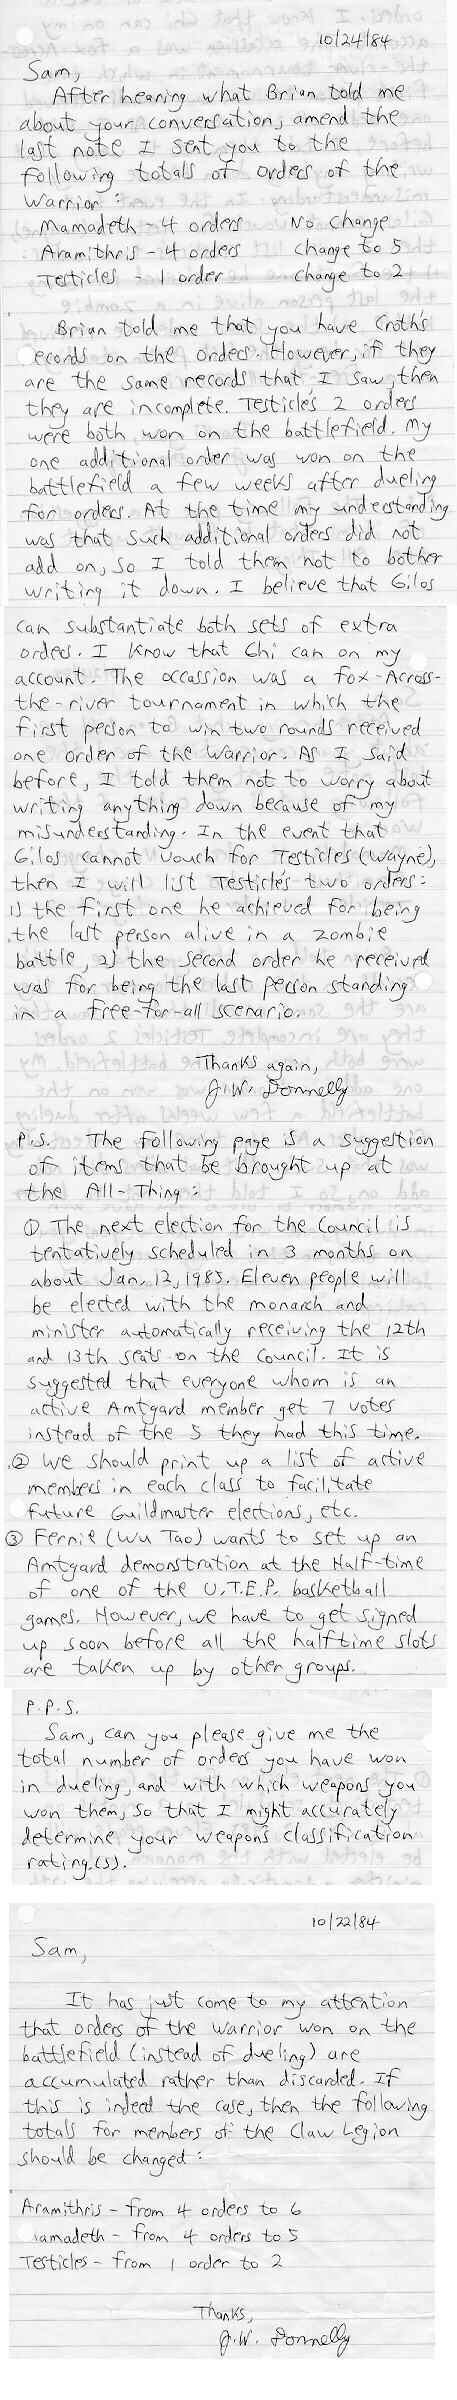 10/24/84
Sam,
After hearing what Brian told me
about your conversation, amend the
last note I sent you to the
following totals of orders of the
Warrior:
Mamadeth - 4 orders No change
Aramithris - 4 orders change to 5
Testicles - 1 order change to 2
Brian told me that you have Croth's
ecords on the orders. However, if they
are the same records that I saw, then
they are incomplete. Testicle's 2 orders
were both won on the battlefield. My
one additional order was won on the
battlefield a few weeks after dueling
for orders. At the time my understanding
was that such additional orders did not
add on, so I told them not to bother
writing it down. I believe that Gilos
can substantiate both sets of extra
orders. I know that Ghi can on my
account. The occassion was a fox-Across-
the-river tournament in which the
first person to win two rounds received
one order of the Warrior. As I said
before, I told them not to worry about
writing anything down because of my
misunderstanding. In the event that
Gilos cannot vouch for Testicles (Wayne),
then I will list Testicle's two orders:
1) the first one he achieved for being
the last person alive in a zombie
battle, 2) the second order he received
was for being the last person standing
in a free-for-all scenario.
Thanks again,
J.W. Donnelly
P.S. The following page is a suggestion
of items that be brought up at
the All-Thing:
① The next election for the Council is
tentatively scheduled in 3 months on
about Jan. 12, 1985. Eleven people will
be elected with the monarch and
minister automatically receiving the 12th
and 13th seats on the Council. It is
suggested that everyone whom is an
active Amtgard member get 7 votes
instead of the 5 they had this time.
② We should print up a list of active
members in each class to facilitate
future Guildmaster elections, etc.
③ Fernie (Wu Tao) wants to set up an
Amtgard demonstration at the Half-time
of one of the U.T.E.P. basketball
games. However, we have to get signed
up soon before all the halftime slots
are taken up by other groups.
P.P.S.
Sam, can you please give me the
total number of orders you have won
in dueling, and with which weapons you
won them, so that I might accurately
determine your weapons classification
rating.(s).
10/22/84
Sam,
It has just come to my attention
that orders of the Warrior won on the
battlefield (instead of dueling) are
accumulated rather than discarded. If
this is indeed the case, then the following
totals for members of the Claw Legion
should be changed:
Aramithris - from 4 orders to 6
amadeth - from 4 orders to 5
Testicles - from 1 order to 2
Thanks,
J.W. Donnelly